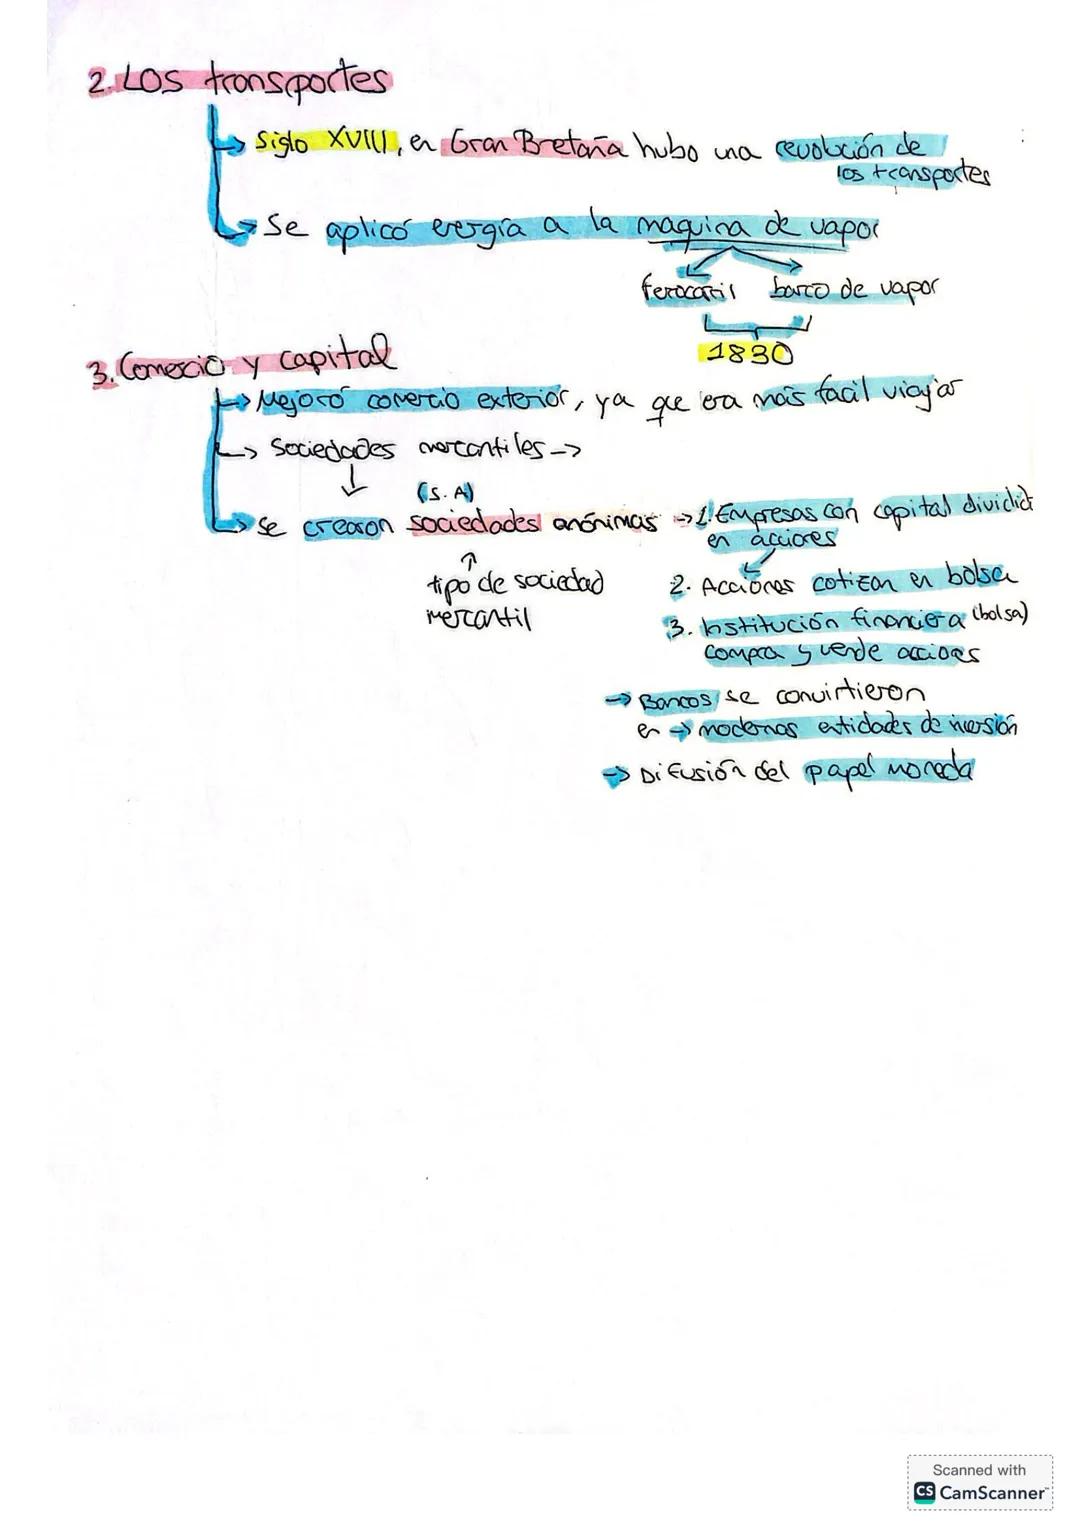 2. Los transportes
→ Siglo XVIII, en Gran Bretaña hubo una revolución de
los transportes
→ Se aplicó energía a la maquina de vapor
ferrocarril barco de vapor
1830
3. Comercio y capital
→ Mejoró comercio exterior, ya que era más facil viajar
→ Sociedades mercantiles →
↓ (S.A)
→ Se crearon sociedades anónimas → 1. Empresas con capital dividido
en acciones
↑
tipo de sociedad
mercantil
2. Acciones cotizan en bolsa
3. Institución financiera (bolsa)
compra y vende acciones
→ Bancos se convirtieron
en → modernas entidades de inversión
→ Difusión del papel moneda
Scanned with
CS CamScanner